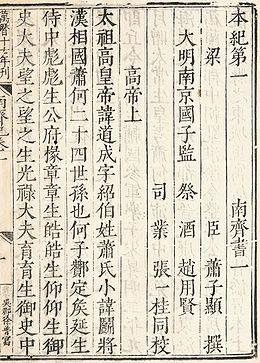 本紀第一 南齊書一
梁 臣 蕭子顯 撰
大明南京國子監 祭 酒 趙用賢
司 業 張一桂同校
高帝上
太祖高皇帝諱道成字紹伯姓蕭氏小諱鬬將
漢相國蕭何二十四世孫也何子酇定侯延生
侍中彪彪生公府掾章章生皓皓生仰仰生御
史大夫望之望之生光祿大夫育育生御史中
萬曆十六年刊